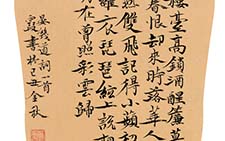 樓臺高鎖酒醒簾幕
春恨却來時落華人
燕雙飛記得小蘋初
羅衣琵琶絃上說相
月在曾照彩雲歸
晏幾道詞一首
書於己丑金秋